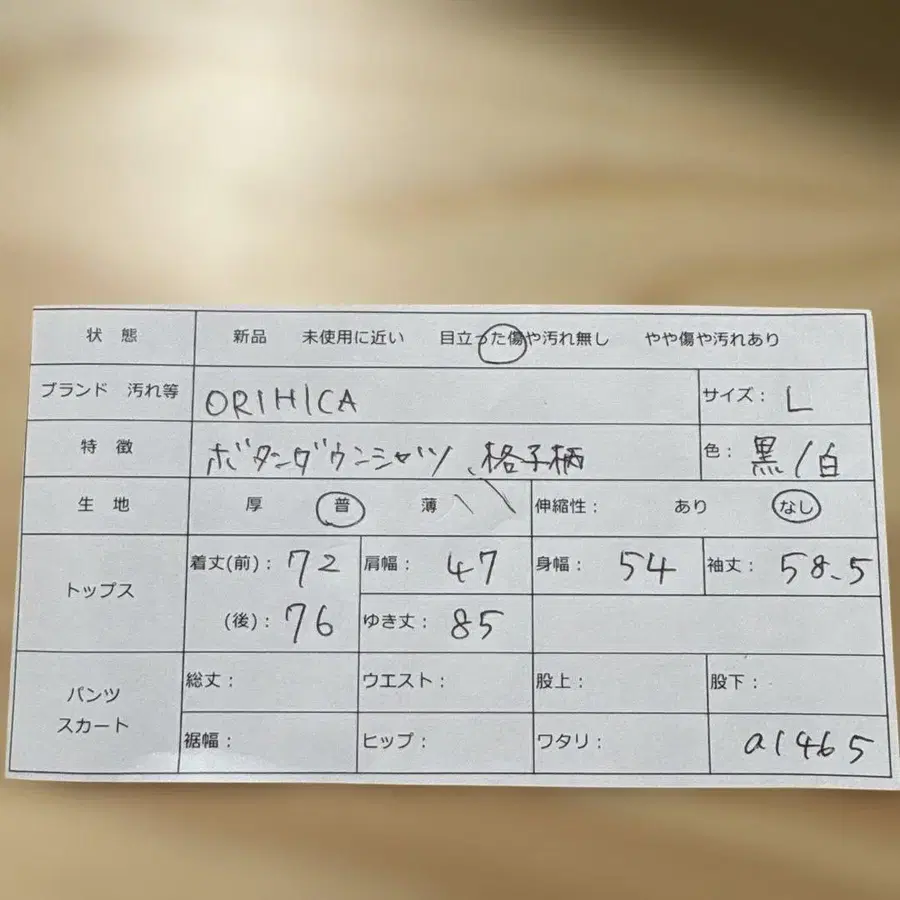 状態 新品 未使用に近い 目立った傷や汚れ無し やや傷や汚れあり
ブランド 汚れ等 ORIHICA サイズ： L
特徴 ボタンダウンシャツ、格子柄 色： 黒/白
生地 厚 普 薄 伸縮性： あり なし
トップス 着丈(前)： 72 肩幅： 47 身幅： 54 袖丈： 58.5
(後)： 76 ゆき丈： 85
パンツ スカート 総丈： ウエスト： 股上： 股下：
裾幅： ヒップ： ワタリ： a1465